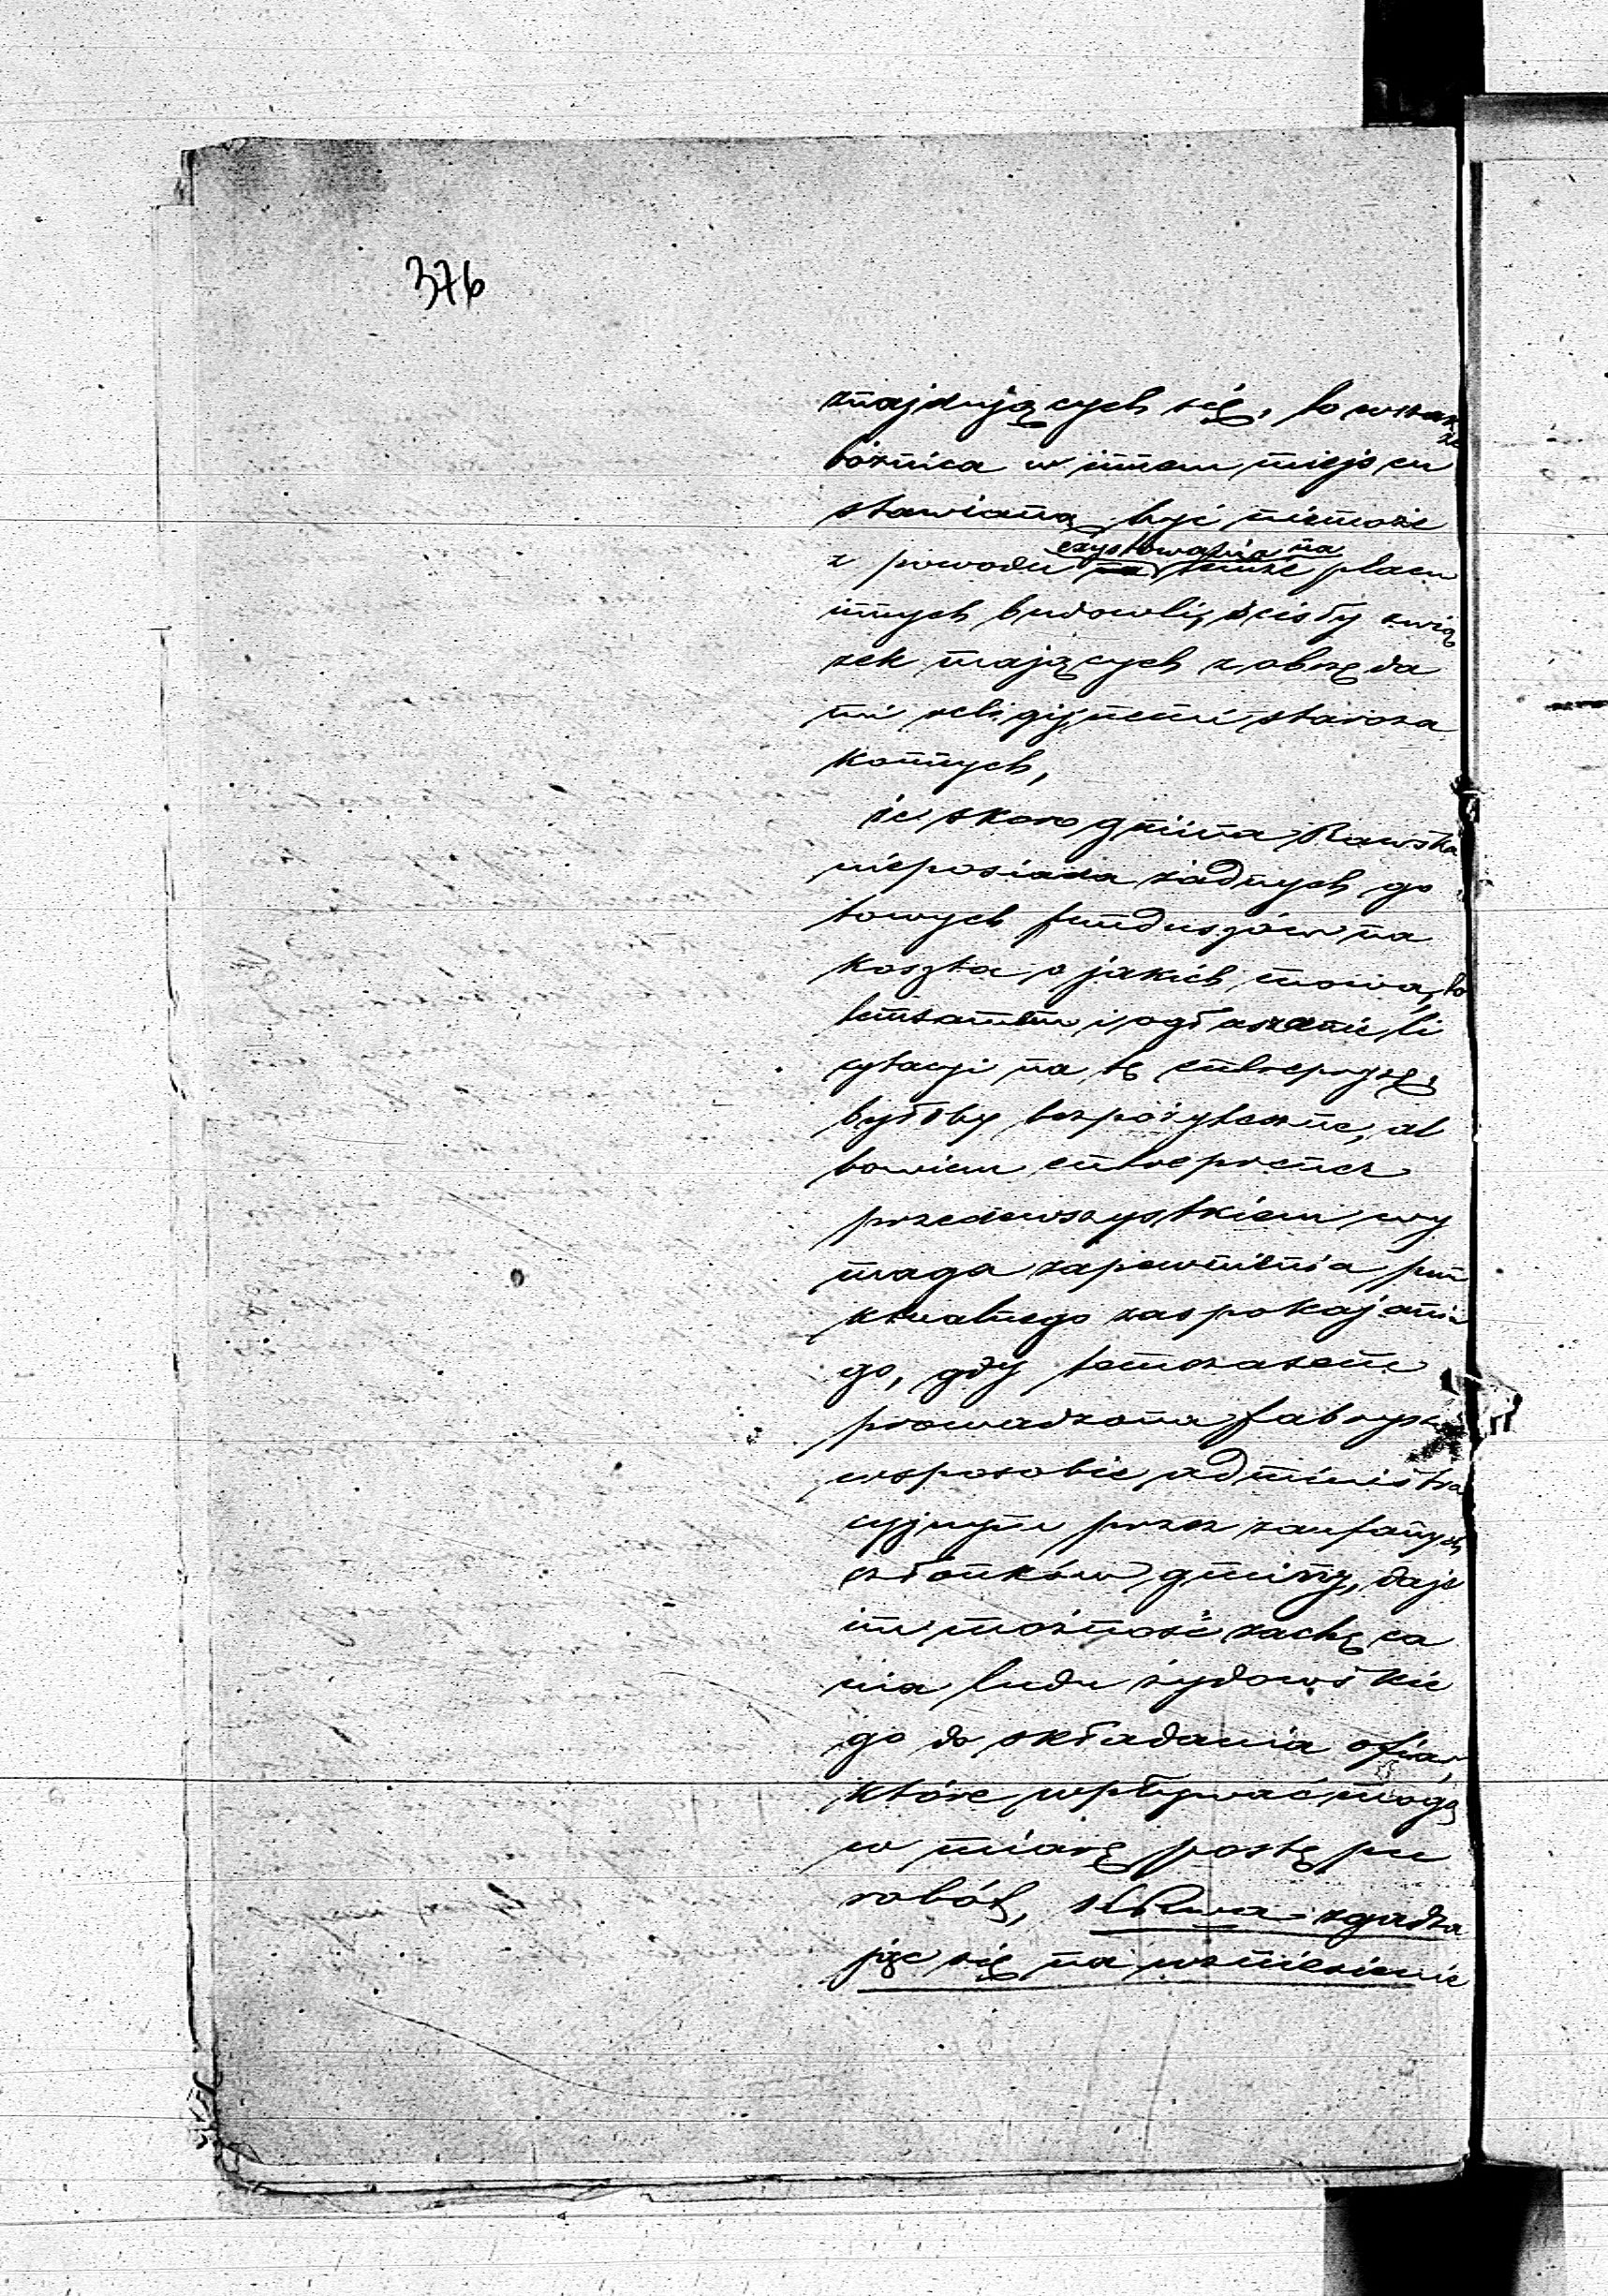 376
znajdujących się, to wszak
że
bóżnica w innem miejscu
stawianą być niemoże
exystowania na
z powodu na temże placu
innych budowli, ścisły zwią
zek mających z obrzęda
mi religijnemi staroza
konnych,
że skoro gmina Rawska
nieposiada żadnych go
towych funduszów na
koszta o jakich mowa, to
temsamem i ogłaszanie li
cytacyi na tę entrepryzę,
byłoby bezpożyteczne, al
bowiem entreprener
przedewszystkiem wy
maga zapewnienia pun
ktualnego zaspokajania
go, gdy temczasem
prowadzona fabryka
wsposobie administra
cyjnym przez zaufanych
członków gminy, daje
im możność zachęca
nia ludu żydowskie
go do składania ofiar,
które wpływać mogą
w miarę postępu
robót, zgadza
jąc się na wzniesienie